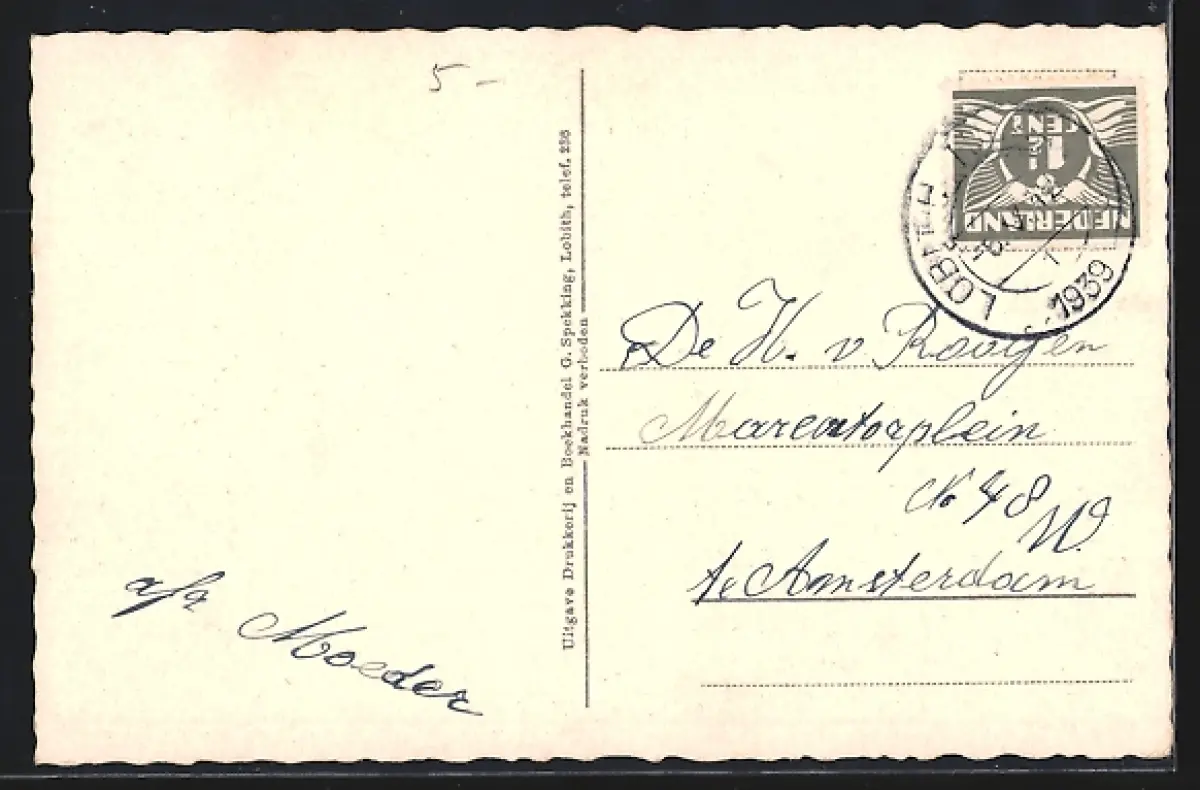 5-
afz
Moeder
Uitgave Drukkerij en Boekhandel G. Spekking, Lobith, telef. 238
Nadruk verboden
NEDERLAND
1½
CENT
LOBITH
1939
De H. v Rooyen
Marcatorplein
No 48
W.
te Amsterdam